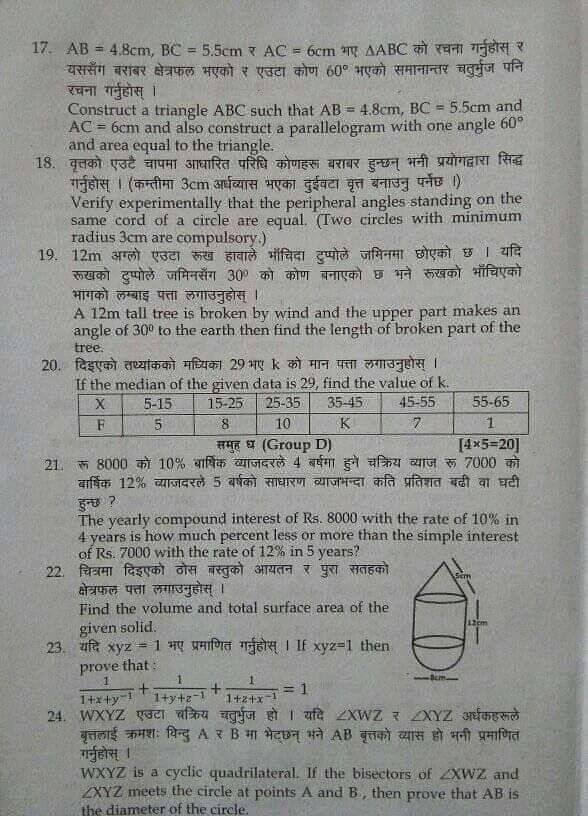 17. AB = 4.8cm, BC = 5.5cm र AC = 6cm भए ΔABC को रचना गर्नुहोस् र
यससँग बराबर क्षेत्रफल भएको र एउटा कोण 60° भएको समानान्तर चतुर्भुज पनि
रचना गर्नुहोस् ।
Construct a triangle ABC such that AB = 4.8cm, BC = 5.5cm and
AC = 6cm and also construct a parallelogram with one angle 60°
and area equal to the triangle.
18. वृत्तको एउटै चापमा आधारित परिधि कोणहरू बराबर हुन्छन् भनी प्रयोगद्वारा सिद्ध
गर्नुहोस् । (कम्तीमा 3cm अर्धव्यास भएका दुईवटा वृत्त बनाउनु पर्नेछ ।)
Verify experimentally that the peripheral angles standing on the
same cord of a circle are equal. (Two circles with minimum
radius 3cm are compulsory.)
19. 12m अग्लो एउटा रूख हावाले भाँचिदा टुप्पोले जमिनमा छोएको छ । यदि
रूखको टुप्पोले जमिनसँग 30⁰ को कोण बनाएको छ भने रूखको भाँचिएको
भागको लम्बाइ पत्ता लगाउनुहोस् ।
A 12m tall tree is broken by wind and the upper part makes an
angle of 30⁰ to the earth then find the length of broken part of the
tree.
20. दिइएको तथ्यांकको मध्यिका 29 भए k को मान पत्ता लगाउनुहोस् ।
If the median of the given data is 29, find the value of k.
X 5-15 15-25 25-35 35-45 45-55 55-65
F 5 8 10 K 7 1
समुह घ (Group D) [4×5=20]
21. रू 8000 को 10% बार्षिक व्याजदरले 4 बर्षमा हुने चक्रिय व्याज रू 7000 को
बार्षिक 12% व्याजदरले 5 बर्षको साधारण व्याजभन्दा कति प्रतिशत बढी वा घटी
हुन्छ ?
The yearly compound interest of Rs. 8000 with the rate of 10% in
4 years is how much percent less or more than the simple interest
of Rs. 7000 with the rate of 12% in 5 years?
22. चित्रमा दिइएको ठोस बस्तुको आयतन र पुरा सतहको
क्षेत्रफल पत्ता लगाउनुहोस् ।
Find the volume and total surface area of the
given solid.
5cm
12cm
8cm
23. यदि xyz = 1 भए प्रमाणित गर्नुहोस् । If xyz=1 then
prove that :
1/(1+x+y⁻¹) + 1/(1+y+z⁻¹) + 1/(1+z+x⁻¹) = 1
24. WXYZ एउटा चक्रिय चतुर्भुज हो । यदि ∠XWZ र ∠XYZ अर्धकहरूले
बृत्तलाई क्रमशः विन्दु A र B मा भेट्छन् भने AB बृत्तको व्यास हो भनी प्रमाणित
गर्नुहोस् ।
WXYZ is a cyclic quadrilateral. If the bisectors of ∠XWZ and
∠XYZ meets the circle at points A and B , then prove that AB is
the diameter of the circle.